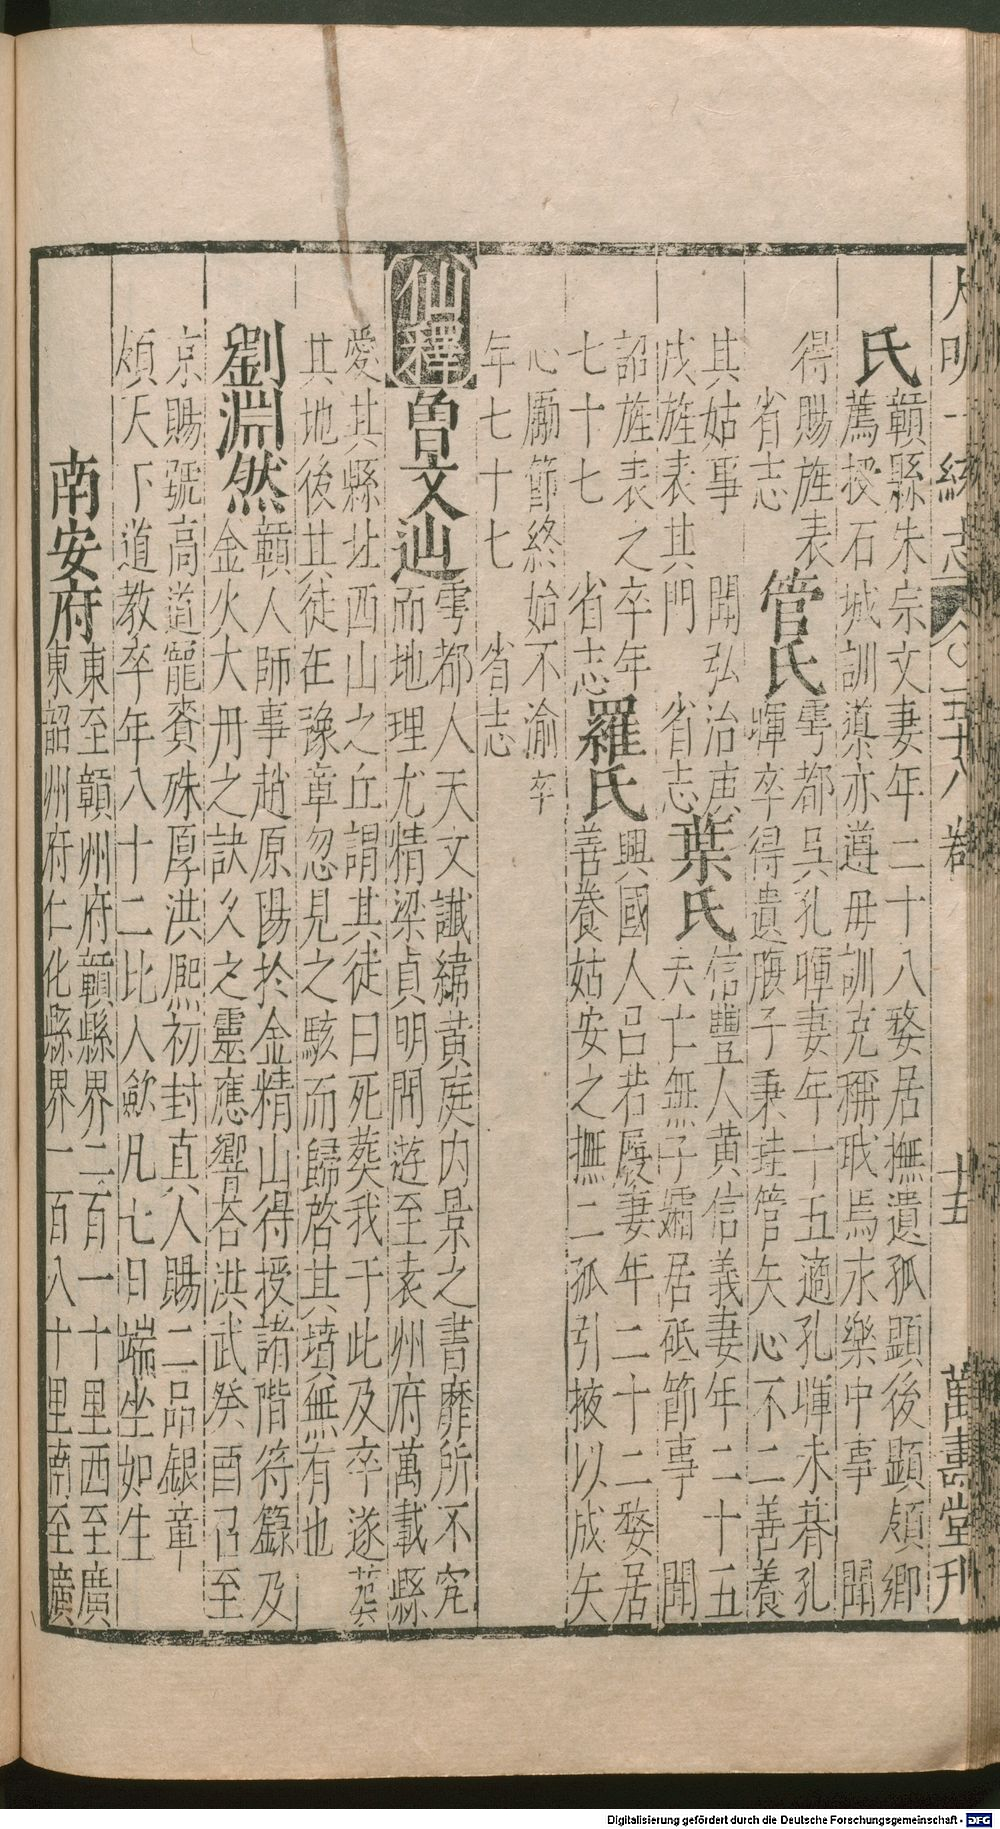 大明一統志 五十八卷 十五 萬壽堂刊
氏
贛縣朱宗文妻年二十八嫠居撫遺孤顕後顕頒鄉
薦授石城訓導亦遵母訓克稱職焉永樂中事 聞
得賜旌表
管氏
雩都吳孔暉妻年十五適孔暉未朞孔
省志
暉卒得遺腹子秉䂓管矢心不二善養
其姑事 聞弘治庚
戌旌表其門 省志
葉氏
信豐人黃信義妻年二十五
夫亡無子孀居砥節事 聞
詔旌表之卒年
七十七 省志
羅氏
興國人呂若屐妻年二十二嫠居
善養姑安之撫二孤引掖以成矢
心勵節終始不渝卒
年七十七 省志
仙釋
曾文辿
雩都人天文讖緯黃庭內景之書靡所不究
而地理尤精梁貞明間遊至袁州府萬載縣
愛其縣北西山之丘謂其徒曰死葬我于此及卒遂葬
其地後其徒在豫章忽見之駭而歸啓其墳無有也
劉淵然
贛人師事趙原陽於金精山得授諸階符籙及
金火大丹之訣久之靈應響荅洪武癸酉召至
京賜號高道寵賚殊厚洪熈初封真人賜二品銀章
領天下道教卒年八十二比人歛凡七日端坐如生
南安府
東至贛州府贛縣界二百一十里西至廣
東韶州府仁化縣界一百八十里南至廣
Digitalisierung gefördert durch die Deutsche Forschungsgemeinschaft - DFG